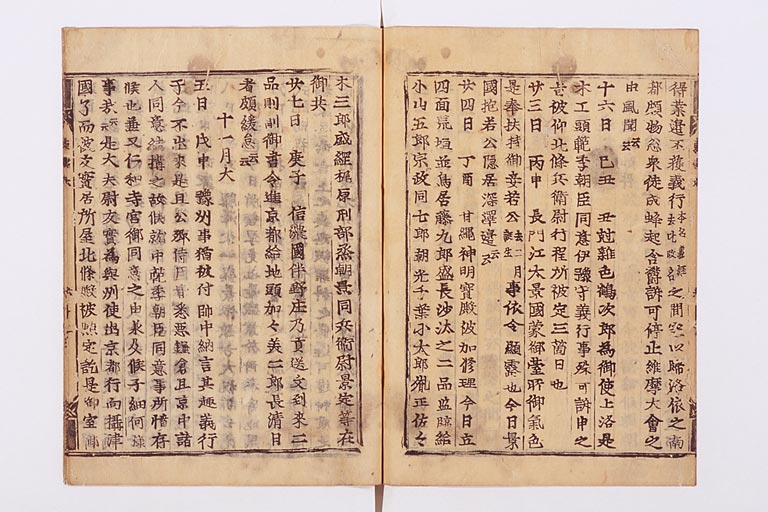 得業逐不獲義行 本名義経 去年改 之間空以歸洛依之南
都頗物忩衆徒成蜂起含欝訴可停止維摩大會之
由風聞云云
十六日 己丑 丑尅雜色鶴次郎為御使上洛是
木工頭範季朝臣同意伊豫守義行事殊可訴申之
旨被仰北條兵衛尉行程所被定三箇日也
廿三日 丙申 長門江太景國蒙御臺所御氣色
是奉扶持御妾若公 去二月誕生 事依令顯露也今日景
國抱若公隱居深澤邊云云
廿四日 丁酉 甘縄神明寶殿被加修理今日立
四面荒垣並鳥居藤九郎盛長沙汰之二品監臨給
小山五郎宗政同七郎朝光千葉小太郎胤正佐々
木三郎盛綱梶原刑部丞朝景同兵衛尉景定等在
御共
廿七日 庚子 信濃國伴野庄乃貢送文到來二
品則副御書令進京都給地頭加々美二郎長清日
者頗緩怠云云
十一月大
五日 戊申 豫州事猶被付帥中納言其趣義行
于今不出來是且公卿侍臣皆悉惡鎌倉且京中諸
人同意結構之故候就中範季朝臣同意事所憤存
候也兼又仁和寺宮御同意之由承及候子細何樣
事哉云云是大夫尉友實為與州使出京都行向攝津
國了而彼友實居所屋北條殿被點定訖是御室御